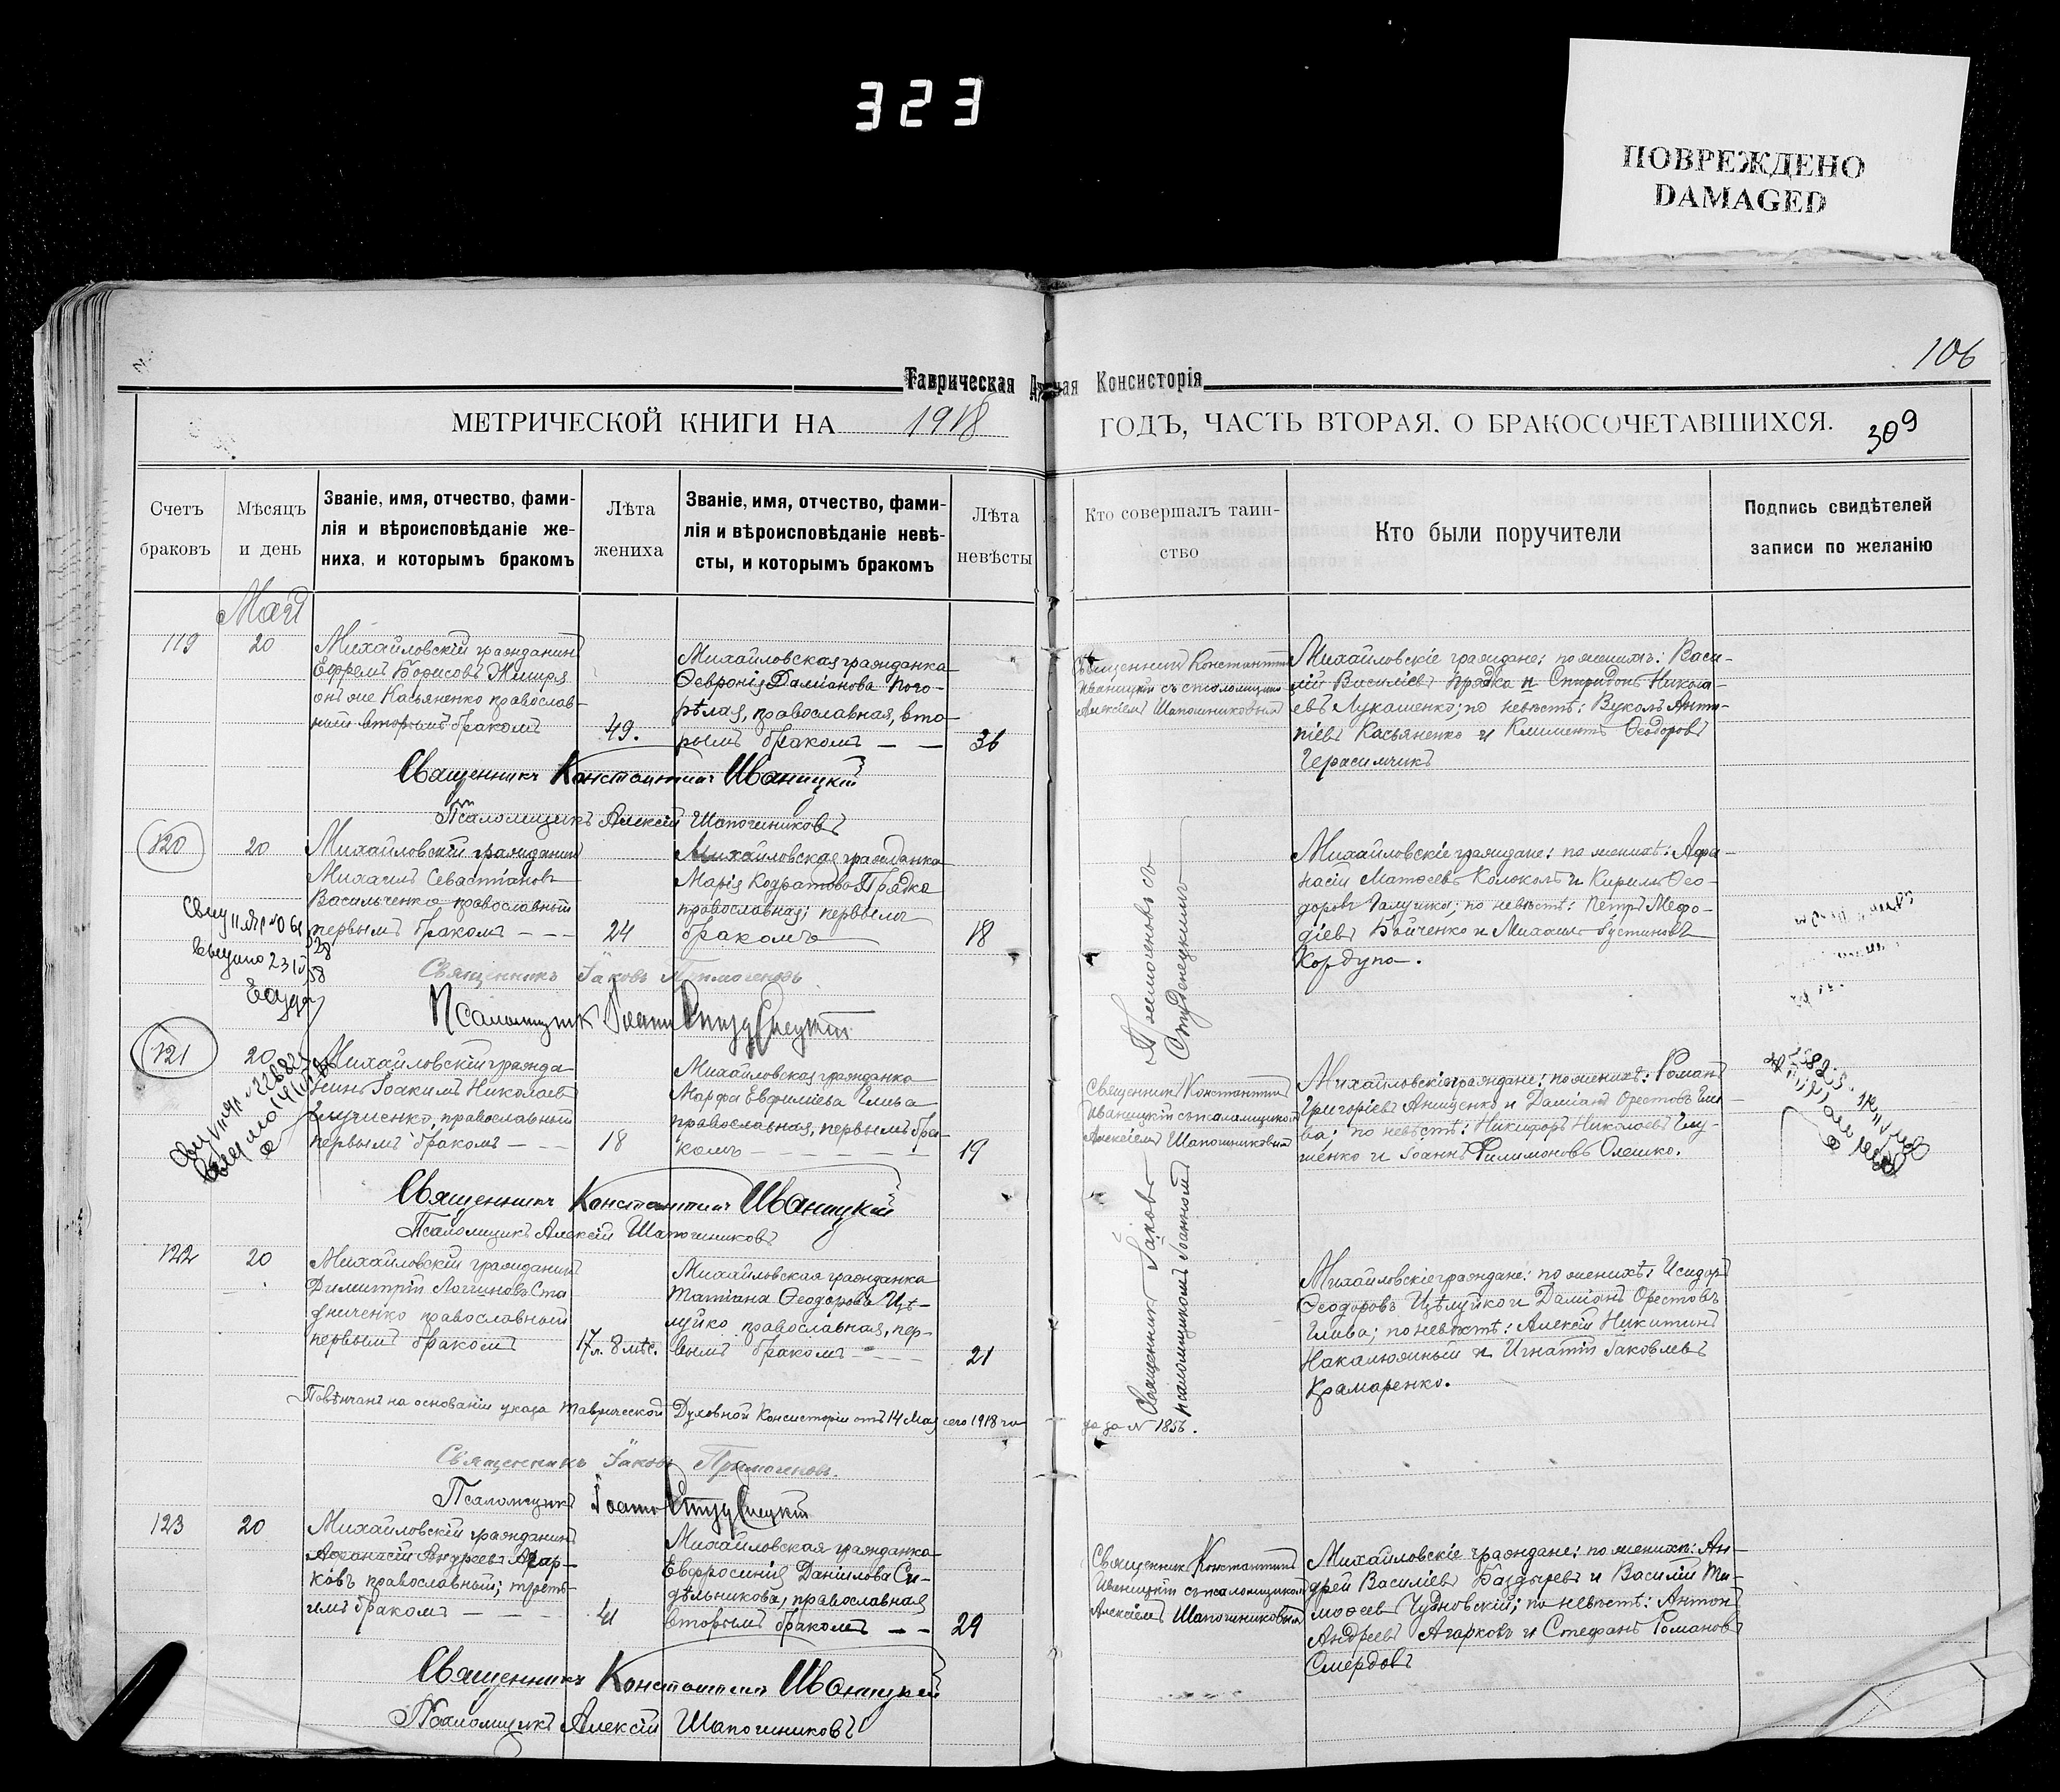 323
ПОВРЕЖДЕНО
DAMAGED
106
Таврическая Духовная Консисторія
МЕТРИЧЕСКОЙ КНИГИ НА 1918 ГОДЪ, ЧАСТЬ ВТОРАЯ, О БРАКОСОЧЕТАВШИХСЯ.
309
Счетъ
браковъ
Мѣсяцъ
и день
Званіе, имя, отчество, фами-
лія и вѣроисповѣданіе же-
ниха, и которымъ бракомъ
Лѣта
жениха
Званіе, имя, отчество, фами-
лія и вѣроисповѣданіе невѣ-
сты, и которымъ бракомъ
Лѣта
невѣсты
Кто совершалъ таин-
ство
Кто были поручители
Подпись свидѣтелей
записи по желанію
Май
119
20
Михайловскій гражданинъ
Ефремъ Борисовъ Жмиря
онъ же Касьяненко православ-
ный вторымъ бракомъ
49.
Михайловская гражданка
Ѳевронія Даміанова Пого-
рѣлая, православная, вто-
рымъ бракомъ — —
36
Священникъ Константинъ
Иваницкій съ псаломщикомъ
Алексіемъ Шапошниковымъ
Михайловскіе граждане: по женихѣ: Васи-
лій Василіевъ Прядка и Спиридонъ Никола-
евъ Лукашенко; по невѣстѣ: Вуколъ Анти-
піевъ Касьяненко и Климентъ Ѳеодоровъ
Герасимчикъ
Священникъ Константинъ Иваницкій
Псаломщикъ Алексій Шапошниковъ
120
20
Михайловскій гражданинъ
Михаилъ Севастіановъ
Васильченко православный
первымъ бракомъ — — —
24
Михайловская гражданка
Марія Кодратова Прядка
православная; первымъ
бракомъ
18
Михайловскіе граждане: по женихѣ: Аѳа-
насій Матѳеевъ Колоколъ и Кириллъ Ѳео-
доровъ Галушка; по невѣстѣ: Петръ Меѳо-
діевъ Бойченко и Михаилъ Іустиновъ
Кордупа.
Священникъ Іаковъ Примогеновъ
Псаломщикъ Іоаннъ Студенецкій
Священникъ Іаковъ Примогеновъ съ
псаломщикомъ Іоанномъ Студенецкимъ
121
20
Михайловскій гражда
нинъ Іоакимъ Николаевъ
Глущенко, православный
первымъ бракомъ — —
18
Михайловская гражданка
Марфа Евфиміева Глива
православная, первымъ бра-
комъ — — — — — —
19
Священникъ Константинъ
Иваницкій съ псаломщикомъ
Алексіемъ Шапошниковымъ
Михайловскіе граждане: по женихѣ: Романъ
Григоріевъ Анищенко и Даміанъ Орестовъ Гли-
ва; по невѣстѣ: Никифоръ Николаевъ Глу-
щенко и Іоаннъ Филимоновъ Олешко.
Священникъ Константинъ Иваницкій
Псаломщикъ Алексій Шапошниковъ
122
20
Михайловскій гражданинъ
Димитрій Логгиновъ Ста
дниченко православный
первымъ бракомъ
17 л. 8 мѣс.
Михайловская гражданка
Татіана Ѳеодорова Цѣ-
луйко православная, пер-
вымъ бракомъ — — —
21
Михайловскіе граждане: по женихѣ: Исидоръ
Ѳеодоровъ Цѣлуйко и Даміанъ Орестовъ
Глива; по невѣстѣ: Алексій Никитинъ
Накалюжный и Игнатій Іаковлевъ
Крамаренко.
Повѣнчанъ на основаніи указа Таврической Духовной Консисторіи отъ 14 Мая сего 1918 го
да за № 1856.
Священникъ Іаковъ Примогеновъ.
Псаломщикъ Іоаннъ Студенецкій
123
20
Михайловскій гражданинъ
Аѳанасій Андреевъ Агар-
ковъ православный; треть-
имъ бракомъ — — —
41
Михайловская гражданка
Евфросинія Даніилова Си-
дѣльникова, православная
вторымъ бракомъ — —
29
Священникъ Константинъ
Иваницкій съ псаломщикомъ
Алексіемъ Шапошниковымъ
Михайловскіе граждане: по женихѣ: Ан-
дрей Василіевъ Баздыревъ и Василій Ти-
моѳеевъ Чудновскій; по невѣстѣ: Антонъ
Андреевъ Агарковъ и Стефанъ Романовъ
Смердовъ
Священникъ Константинъ Иваницкій
Псаломщикъ Алексій Шапошниковъ